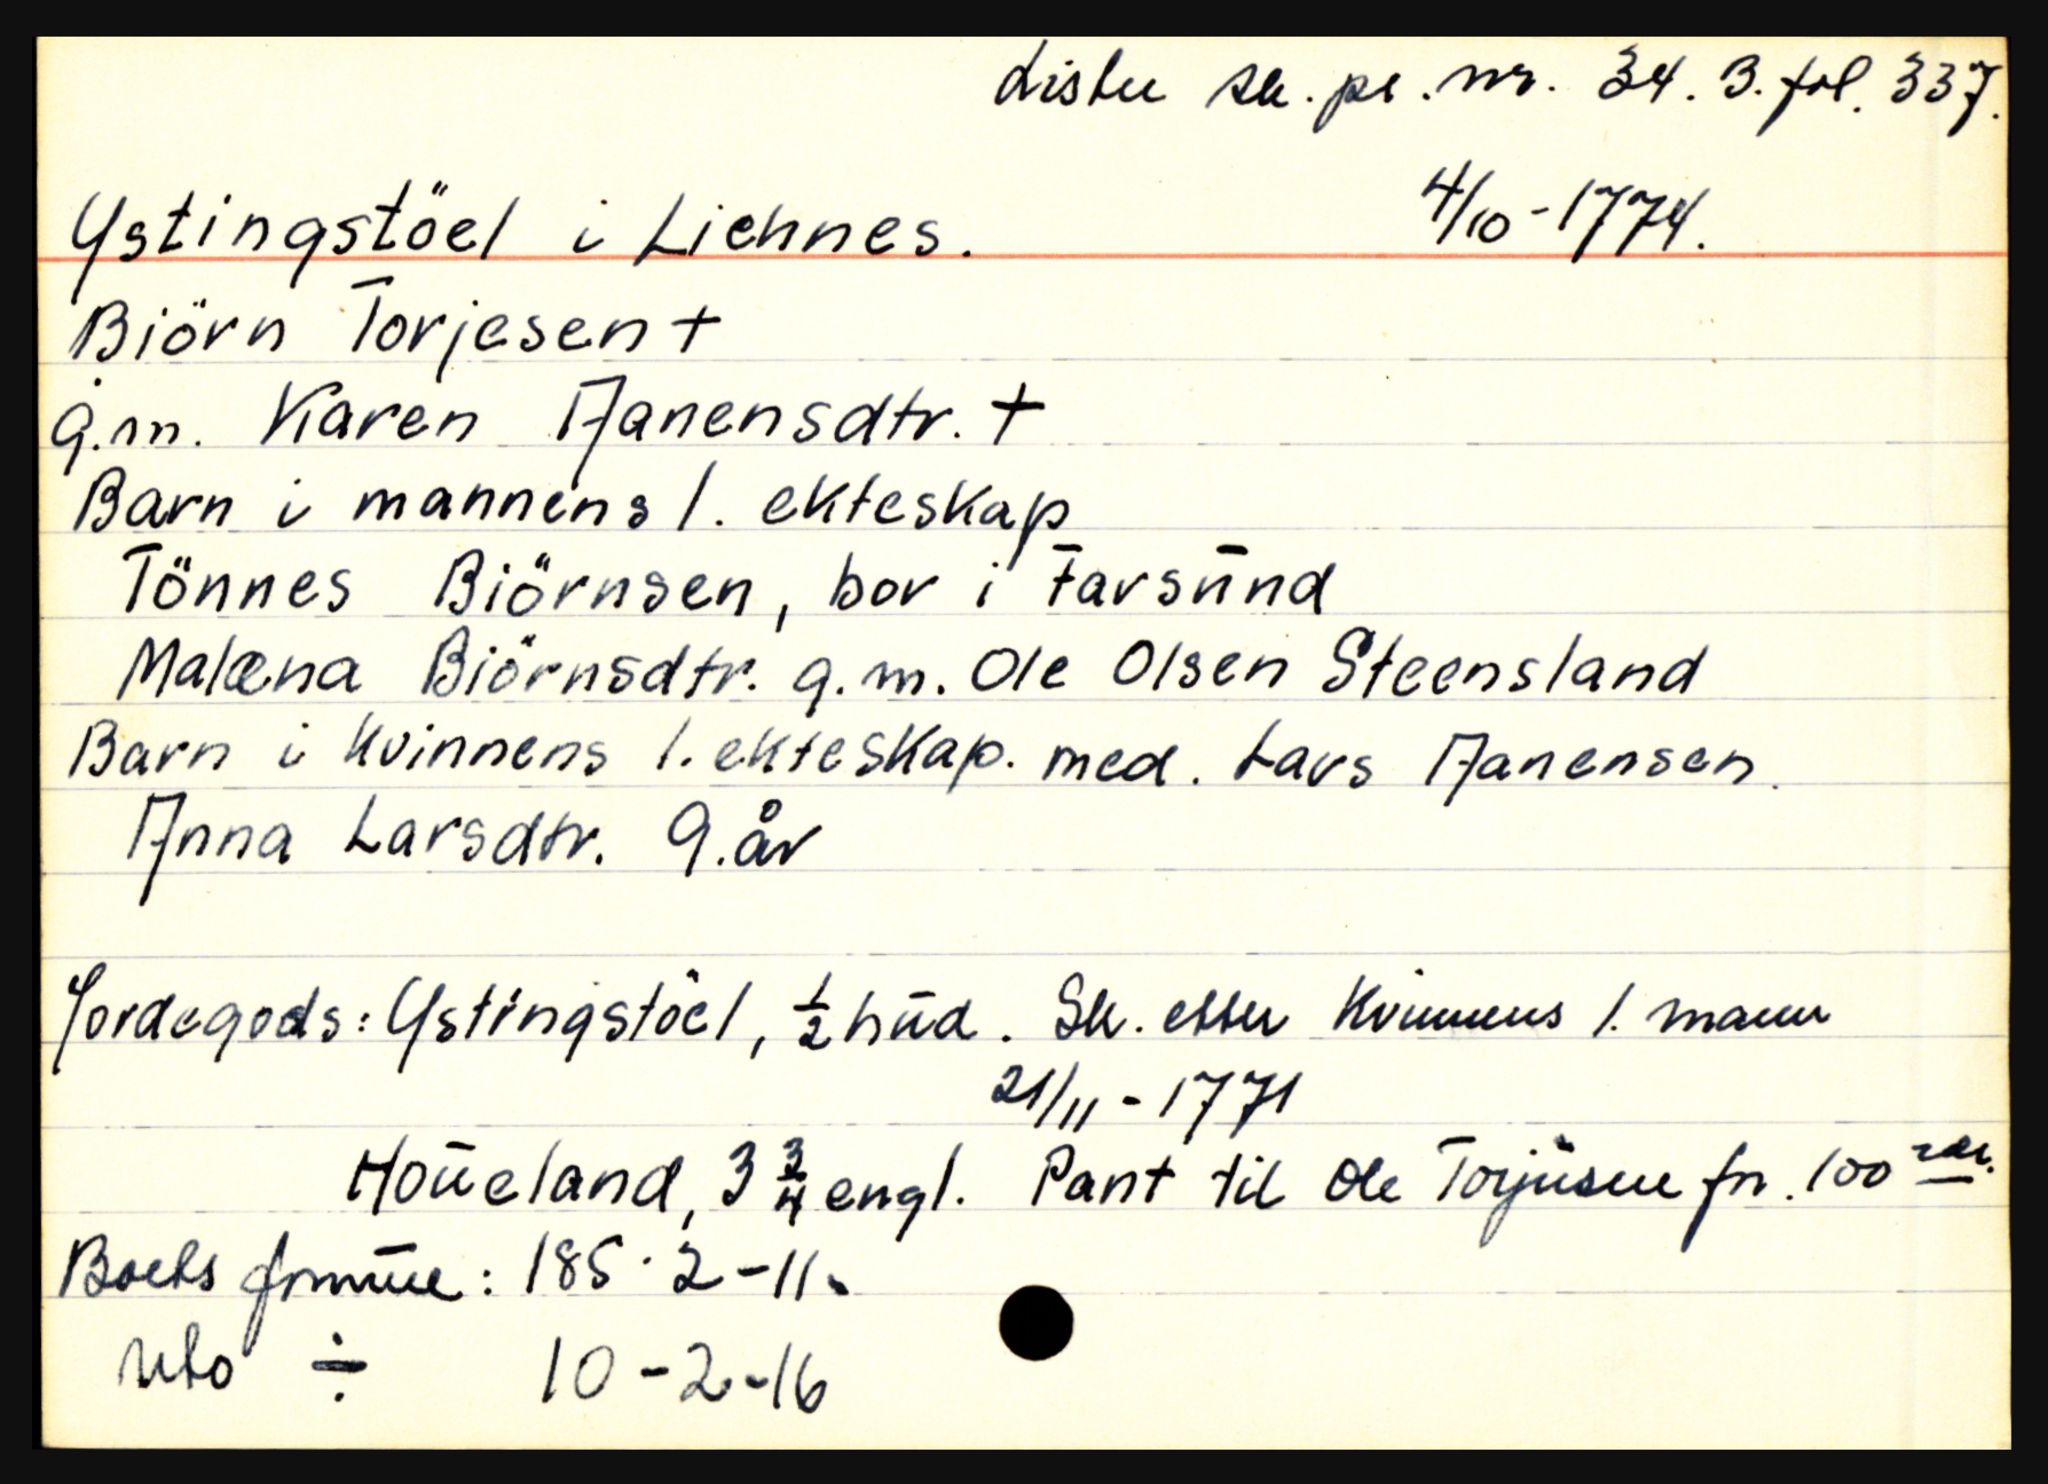 Lister sk. pr. nr. 34. B. fol. 337.
4/10-1774.
Ystingstöel i Liehnes.
Biörn Torjesen +
g.m. Karen Aanensdtr. +
Barn i mannens 1. ekteskap
Tönnes Biörnsen, bor i Farsūnd
Malæna Biörnsdtr. g.m. Ole Olsen Steensland
Barn i kvinnens 1. ekteskap. med. Lars Aanensen.
Anna Larsdtr. 9. år
Jordegods: Ystingstöel, ½ hūd. Sk. etter kvinnens 1. mann
21/11-1771
Hoūeland, 3 ¾ engl. Pant til Ole Torjūsen for. 100 rdr.
Boets formūe: 185-2-11.
Nto ÷ 10-2-16